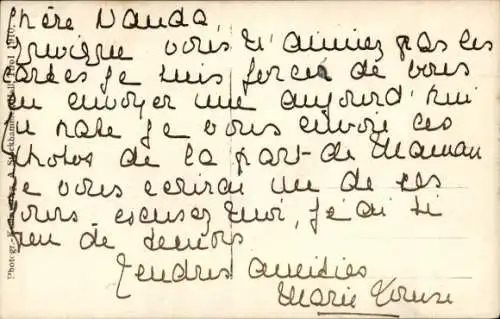 Chère Nanda,
Quoique vous n'aimiez pas les
cartes je suis forcée de vous
en envoyer une aujourd'hui
je vous envoie ces
photos de la part de Maman
je vous ecrirai un de ces
jours. escusez moi, j'ai si
peu de temps
Tendres amitiés
Marie